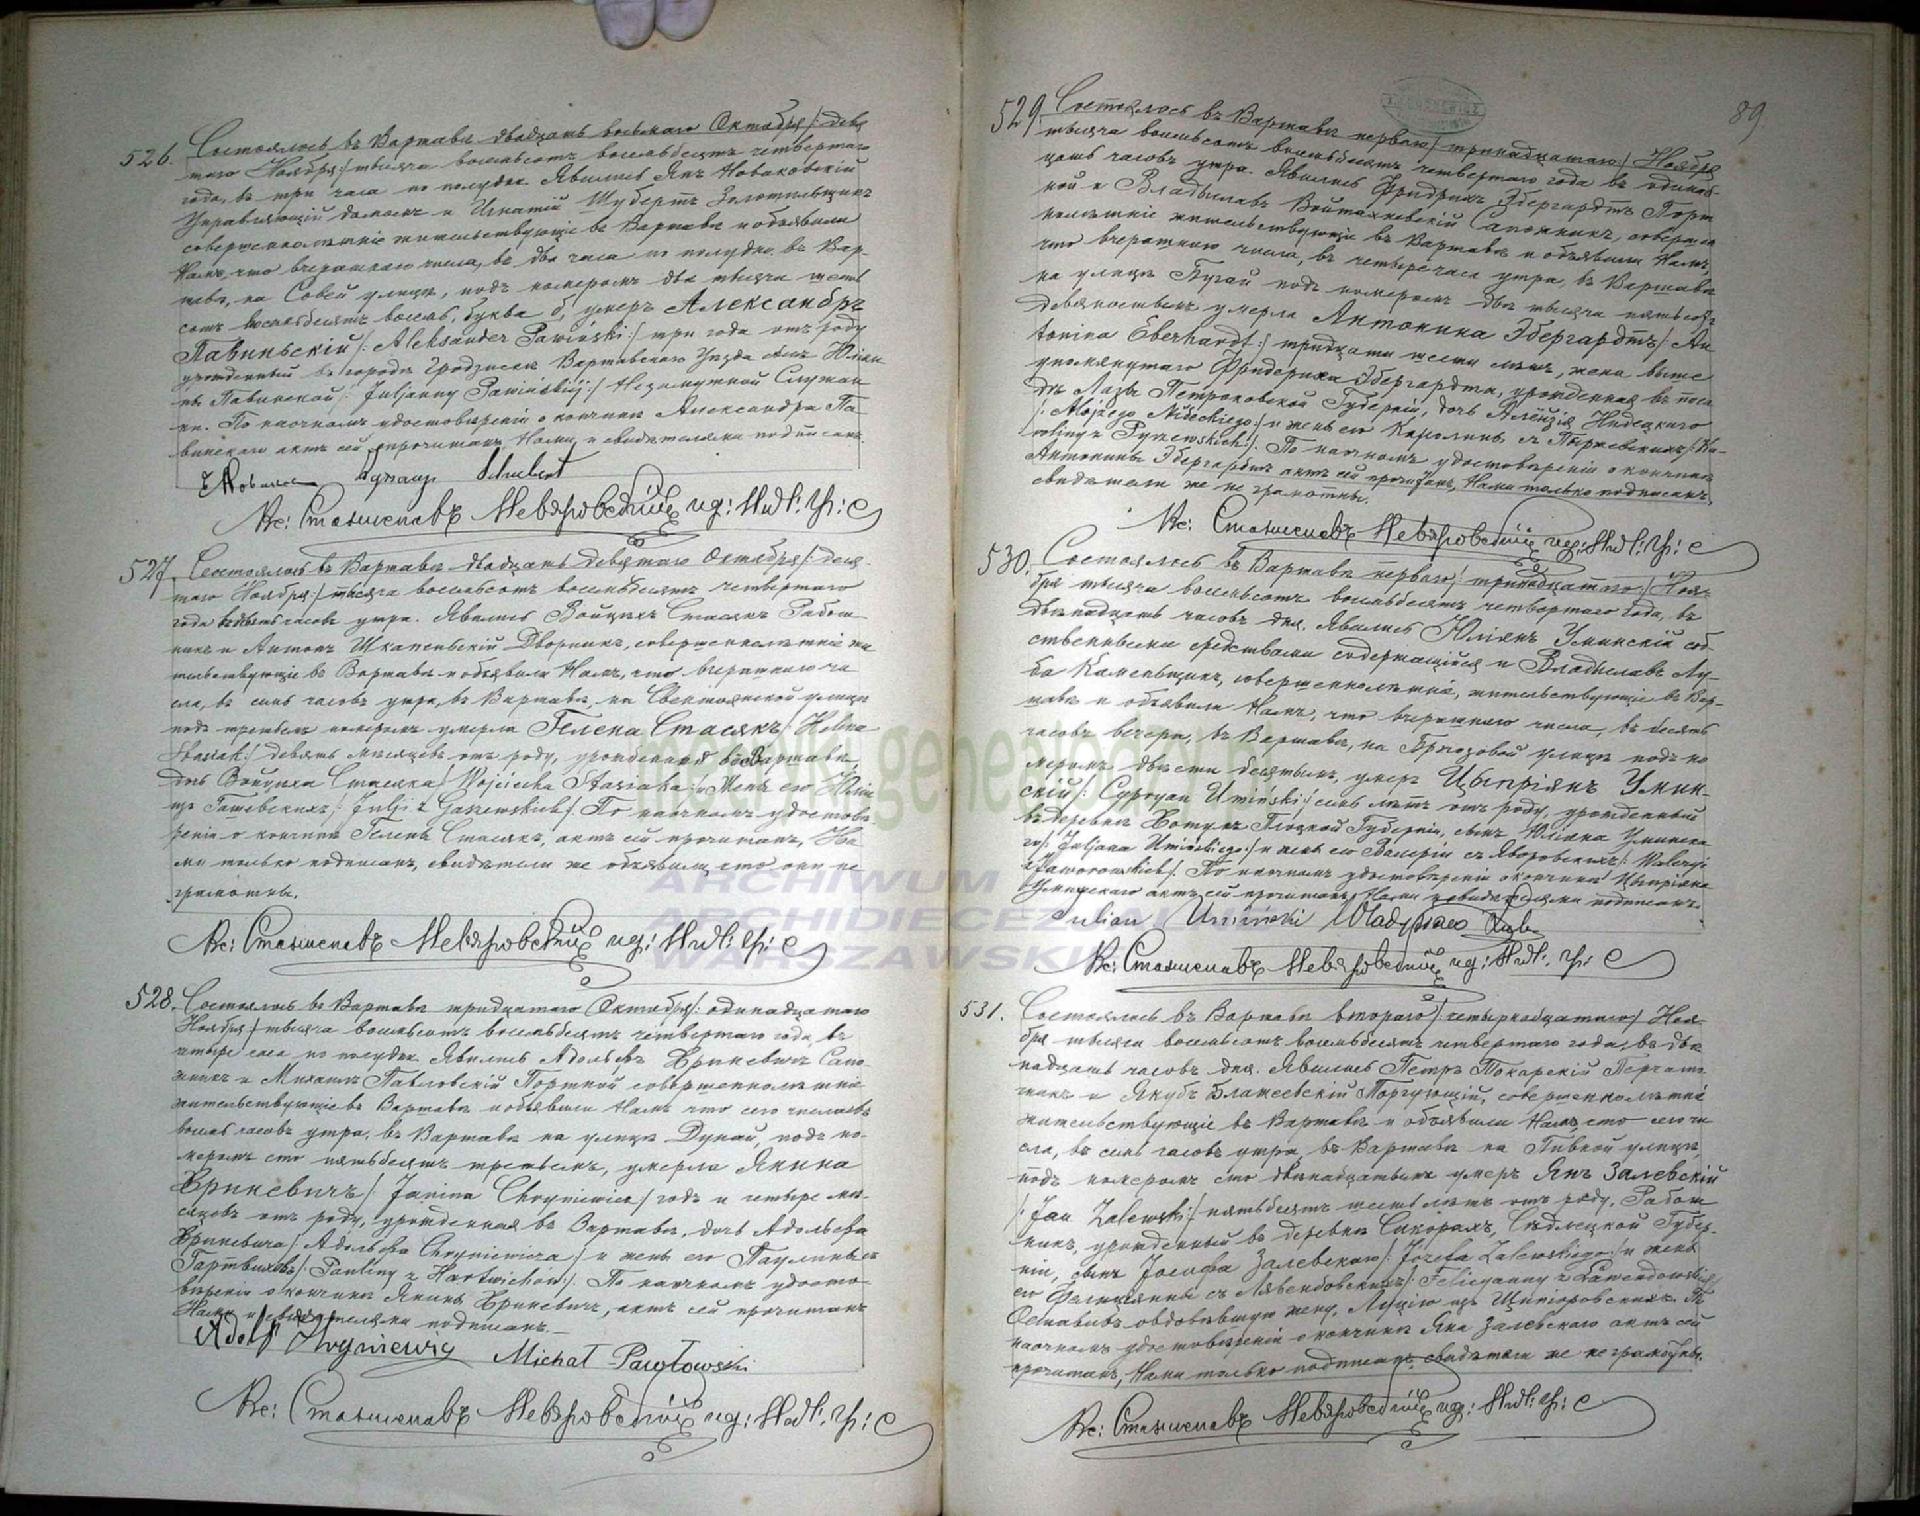 526. Состоялось въ Варшавѣ двадцать восьмаго Октября /: девя
таго Ноября :/ тысяча восемьсотъ восемьдесятъ четвертаго
года, въ три часа по полудни. Явились Янъ Новаковскій
Управляющій домомъ и Игнатій Шубертъ Золотильщикъ
совершеннолѣтніе жительствующіе въ Варшавѣ и объявили
Намъ, что вчерашняго числа, въ два часа по полудни, въ Вар-
шавѣ, на Совей улицѣ, подъ номеромъ два тысяча шесть
сотъ восемьдесятъ восемь, буква б, умеръ Александръ
Павиньскій /: Aleksander Pawiński :/ три года отъ роду
урожденный въ городѣ Гродзискѣ Варшавскаго Уѣзда сынъ Юліан
ны Павинской /: Juljanny Pawińskiij :/ Незамужной Служан
ки. По наочномъ удостовѣреніи о кончинѣ Александра Па-
винскаго актъ сей прочитанъ Нами и свидѣтелями подписанъ.
Ignacy Schubert
Кс: Станиславъ Невяровскій ид: Н. А. Гр: С
527. Состоялось въ Варшавѣ двадцать девятаго Октября /: деся-
таго Ноября :/ тысяча восемьсотъ восемьдесятъ четвертаго
года въ девять часовъ утра. Явились Войцѣхъ Стасякъ Работ-
никъ и Антонъ Шкапеньскій Дворникъ, совершеннолѣтніе жи
тельствующіе въ Варшавѣ и объявили Намъ, что вчерашняго чи
сла, въ семь часовъ утра, въ Варшавѣ, на Свентоянской улицѣ
подъ третьимъ номеромъ умерла Гелена Стасякъ /: Helena
Stasiak :/ девять мѣсяцевъ отъ роду, урожденная въ Варшавѣ,
дочь Войцѣха Стасяка /: Wojciecha Stasiaka :/ и жены его Юліи
изъ Гашевскихъ /: Julji z Gaszewskich :/ По наочномъ удостовѣ
реніи о кончинѣ Гелены Стасякъ, актъ сей прочитанъ, На
ми только подписанъ, свидѣтели же объявили, что они не
грамотны.
Кс: Станиславъ Невяровскій ид: Н. А. Гр: С
528. Состоялось въ Варшавѣ тридцатаго Октября /: одинадцатаго
Ноября :/ тысяча восемьсотъ восемьдесятъ четвертаго года, въ
четыре часа по полудни. Явились Адольфъ Хрыневичъ Сапо
жникъ и Михалъ Павловскій Портной совершеннолѣтніе
жительствующіе въ Варшавѣ и объявили Намъ что сего числа въ
восемь часовъ утра, въ Варшавѣ на улицѣ Дунай, подъ но-
меромъ сто пятьдесятъ третьимъ, умерла Янина
Хрыневичъ /: Janina Chryniewicz :/ годъ и четыре мѣ-
сяцовъ отъ роду, урожденная въ Варшавѣ, дочь Адольфа
Хрыневича /: Адольфа Chryniewicza :/ и жены его Паулины съ
Гартвиховъ /: Pauliny z Hartwichow :/. По наочномъ удосто-
вѣреніи о кончинѣ Янины Хрыневичъ, актъ сей прочитанъ
Нами и свидѣтелями подписанъ.—
Adolf Chryniewicz Michał Pawłowski
Кс: Станиславъ Невяровскій ид: Н. А. Гр: С
89
529. Состоялось въ Варшавѣ перваго /: тринадцатаго :/ Ноября
тысяча восемьсотъ восемьдесятъ четвертаго года въ одинад-
цать часовъ утра. Явились Фридрихъ Эбергардтъ Порт
ной и Владыславъ Сапожникъ, соверше
ннолѣтніе жительствующіе въ Варшавѣ и объявили Намъ,
что вчерашняго числа, въ четыре часа утра, въ Варшавѣ
на улицѣ Бугай подъ номеромъ два тысячи пятьсотъ
девяностымъ умерла Антонина Эбергардтъ /: An
tonina Eberhardt :/ тридцати шести лѣтъ, жена выше
упомянутаго Фридериха Эбергардта, урожденная въ поса
дѣ Лазы Петроковской Губерніи, дочь Алойзія Нидецкаго
/: Alojzego Nideckiego :/ и жены его Каролины съ Пыржевскихъ /: Ka-
roliny z Pyrzewskich :/. По наочномъ удостовѣреніи о кончинѣ
Антонины Эбергардтъ актъ сей прочитанъ, Нами только подписанъ,
свидѣтели же не грамотны.
Кс: Станиславъ Невяровскій ид: Н. А. Гр: С
530. Состоялось въ Варшавѣ перваго /: тринадцатаго :/ Нояб-
бря тысяча восемьсотъ восемьдесятъ четвертаго года, въ
двѣнадцать часовъ дня. Явились Юліянъ Уминскій соб-
ственными средствами содержащійся и Владыславъ Лу-
ба Каменьщикъ, совершеннолѣтніе, жительствующіе въ Вар-
шавѣ и объявили Намъ, что вчерашняго числа, въ десять
часовъ вечера, въ Варшавѣ, на Брюзовой улицѣ подъ но
меромъ двѣсти десятымъ, умеръ Цыпріянъ Умин-
скій /: Cypryan Umiński :/ семь лѣтъ отъ роду, урожденный
въ деревнѣ Плоцкой Губерніи, сынъ Юліяна Уминска
го /: Juljana Umińskiego :/ и жены его Валеріи съ Яворовскихъ /: Waleryi
z Jaworowskich :/. По наочномъ удостовѣреніи о кончинѣ Цыпріяна
Уминскаго актъ сей прочитанъ, Нами и свидѣтелями подписанъ.
Julian Umiński Władysław Luba
Кс: Станиславъ Невяровскій ид: Н. А. Гр: С
531. Состоялось въ Варшавѣ втораго /: четырнадцатаго :/ Ноя-
бря тысяча восемьсотъ восемьдесятъ четвертаго года, въ двѣ
надцать часовъ дня. Явились Петръ Токарскій Перчат-
никъ и Якубъ Блажеевскій Торгующій, совершеннолѣтніе
жительствующіе въ Варшавѣ и объявили Намъ, что сего чи
сла, въ семь часовъ утра, въ Варшавѣ на Пивной улицѣ
подъ номеромъ сто двѣнадцатымъ умеръ Янъ Залевскій
/: Jan Zalewski :/ пятьдесятъ шесть лѣтъ отъ роду, Работ
никъ, урожденный въ деревнѣ Сикорахъ, Сѣдлецкой Губер-
ніи, сынъ Іосифа Залевскаго /: Józefa Zalewskiego :/ и жены
его Фелиціянны съ Лявендовскихъ /: Felicyanny z Lawendowskich :/
Оставивъ овдовѣвшую жену, Луцію изъ Щипіоровскихъ. По
наочномъ удостовѣреніи о кончинѣ Яна Залевскаго актъ сей
прочитанъ, Нами только подписанъ, свидѣтели же не грамотны.
Кс: Станиславъ Невяровскій ид: Н. А. Гр: С
metryki.genealodzy.pl
ARCHIWUM
ARCHIDIECEZJI
WARSZAWSKIEJ